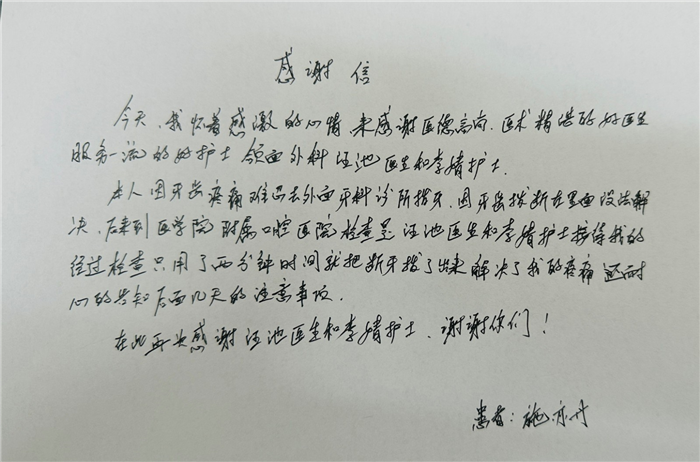 感谢信
今天、我怀着感激的心情来感谢医德高尚、医术精湛的好医生
服务一流的好护士 颌面外科汪池医生和李婧护士.
本人因牙齿疼痛难忍去外面牙科诊所拔牙、因牙齿拔断在里面没法解
决、后来到医学院附属口腔医院检查是汪池医生和李婧护士接待我的
经过检查只用了两分钟时间就把断牙拔了出来解决了我的疼痛还耐
心的告知后面几天的注意事项.
在此再次感谢汪池医生和李婧护士、谢谢你们!
患者:施亦丹